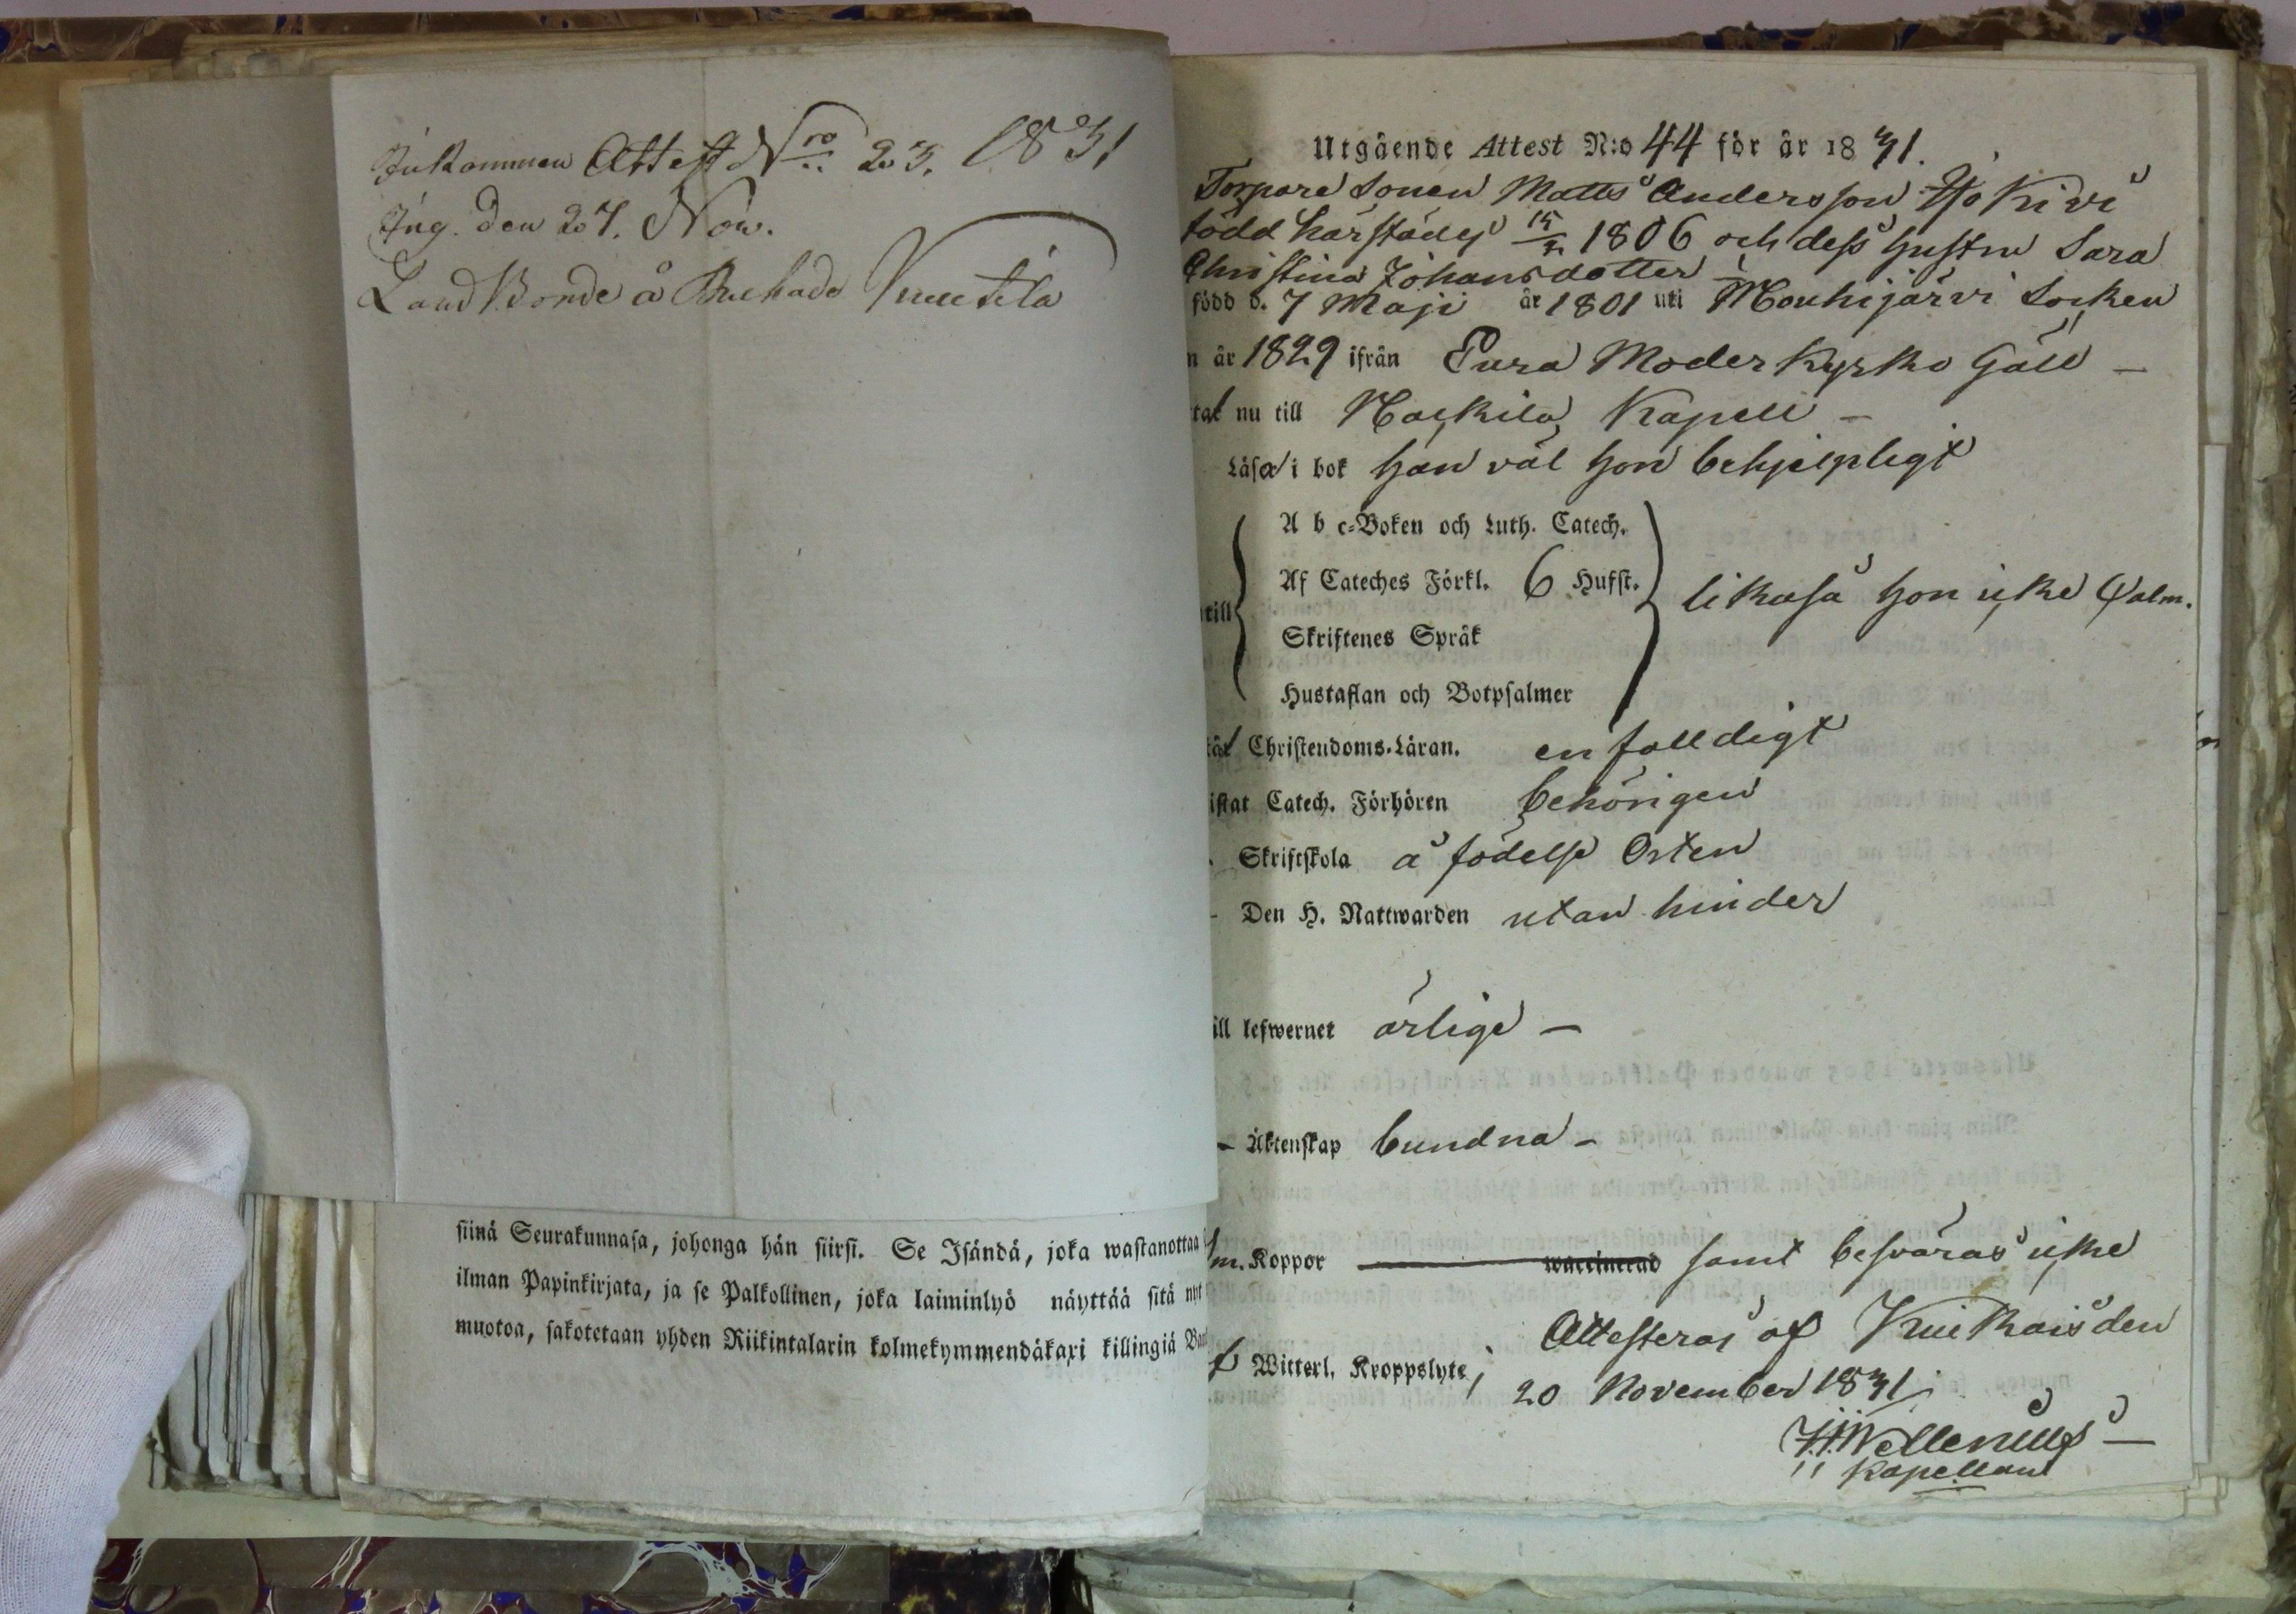 Inkommen Attest Nro 23. 1831
Ing. den 27. Nov.
Land Bonde å Knuutila
siinä Seurakunnasa, johonga hän siirsi. Se Isändä, joka wastanottaa
ilman Papinkirjata, ja se Palkollinen, joka laiminlyö näyttää sitä nyt
muotoa, sakotetaan yhden Riikintalarin kolmekymmendäkaxi killingiä
Utgående Attest N:o 44 för år 1831.
Torpare Sonen Matts Andersson Iso Kivi
född härstädes 15/2 1806 och dess hustru Sara
Christina Johansdotter
född d. 7 Maji år 1801 uti Mouhijärvi Socken
n år 1829 ifrån Eura Moder Kyrko Gäll –
tat nu till Kapell –
Läsa i bok han väl hon behjelpligt
A b c-Boken och Luth. Catech.
Af Cateches Förkl. 6 Hufst.
till likaså hon icke Psalm.
Skriftenes Språk
Hustaflan och Botpsalmer
Christendoms-Läran. enfalldigt
istat Catech. Förhören behörigen
Skriftskola å födelse Orten
– Den H. Nattwarden utan hinder
ill lefwernet ärlige –
– Äktenskap bundna –
m. Koppor waccinerad samt besväras icke
Attesteras af Kiukais den
f Witterl. Kroppslyte;
20 November 1831.
Kapellan